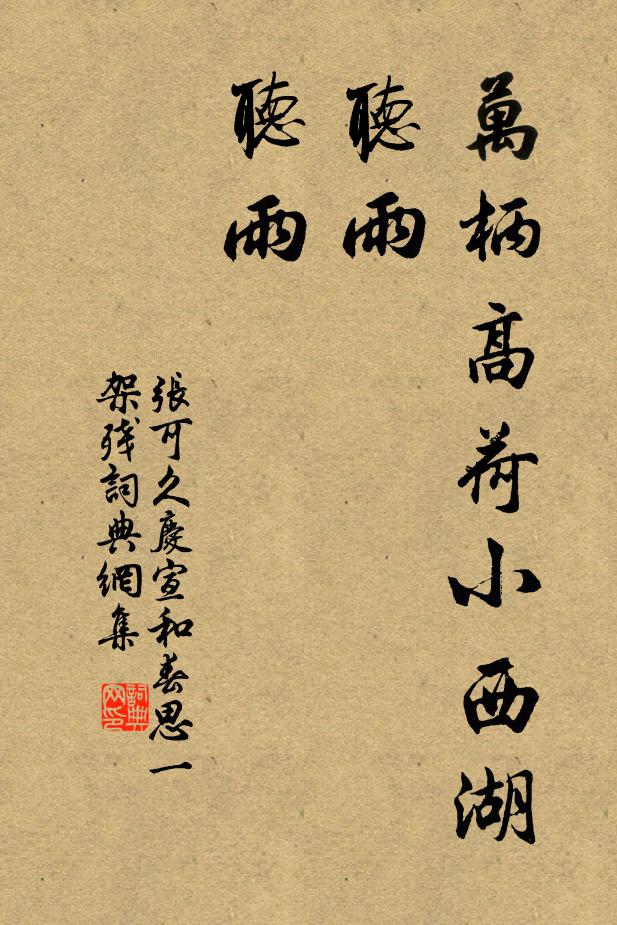 萬柄高荷小西湖
聽雨
聽雨
張可久慶宣和春思一
架残詞典網集
詞典
网印